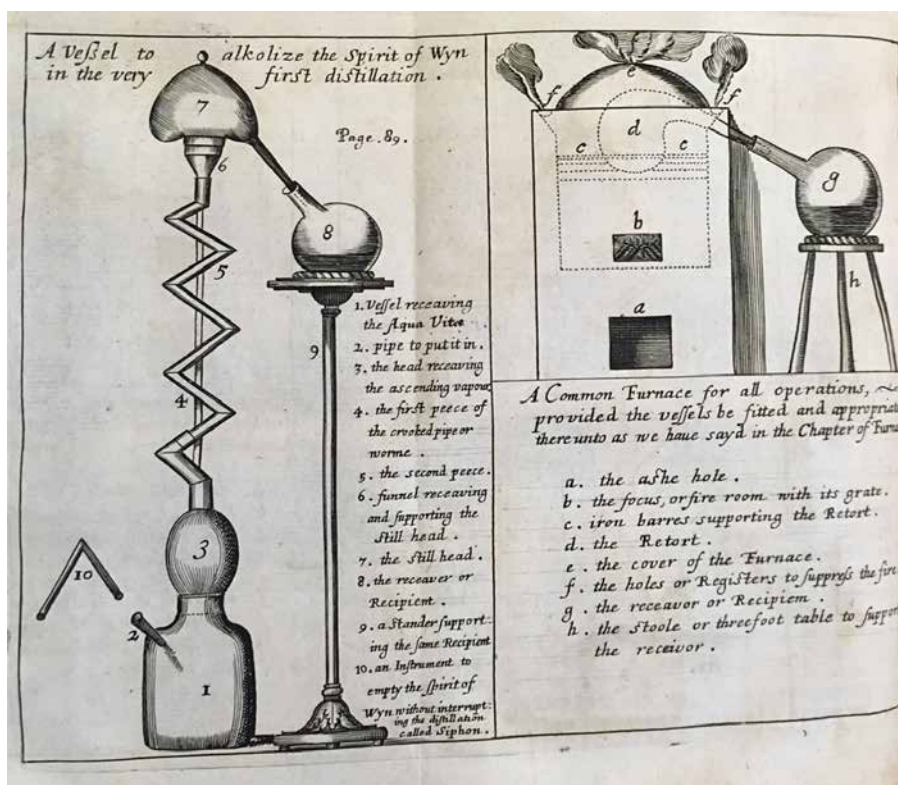 A Veſſel to alkolize the Spirit of Wyn
in the very first diſtillation .
Page . 89 .
7
6
8
5
9
4
3
10
2
1
1. Veſſel receaving
the Aqua Vitæ
2. pipe to put it in .
3. the head receaving
the aſcending vapour
4. the first peece of
the crooked pipe or
worme .
5. the second peece .
6. funnel receaving
and ſupporting the
Still head .
7. the still head .
8. the receaver or
Recipient .
9. a Stander ſupport:
ing the ſame Recipient
10. an Inſtrument to
empty the ſpirit of
Wyn without interrupt:
ing the diſtillation
called Siphon .
e
f f
d
c c
g
b
h
a
A Common Furnace for all operations,
provided the veſſels be fitted and appropriate
thereunto as we haue say'd in the Chapter of Furna
a . the aſhe hole .
b . the focus, or fire room with its grate .
c . iron barres supporting the Retort .
d . the Retort .
e . the cover of the Furnace .
f . the holes or Regiſters to suppreſs the fire
g . the receavor or Recipiem .
h . the stoole or threefoot table to suppor
the receivor .